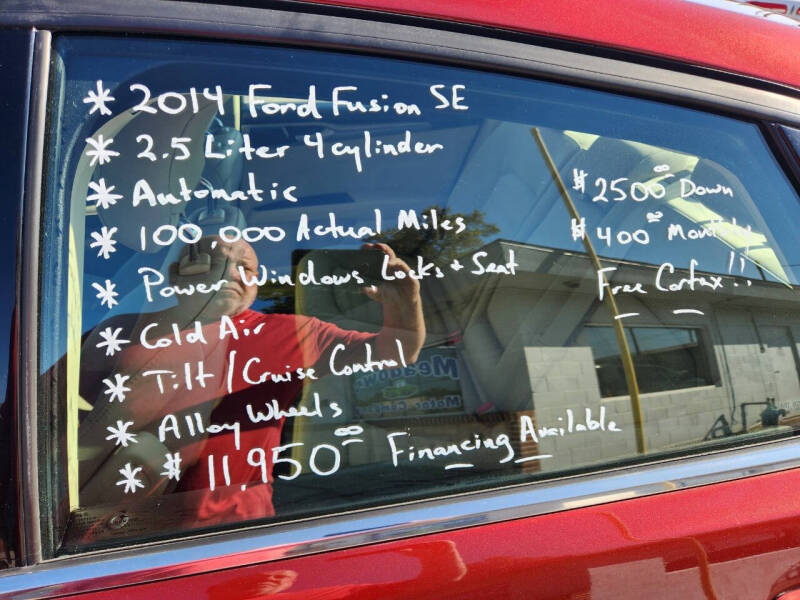 * 2014 Ford Fusion SE
* 2.5 Liter 4 cylinder
* Automatic
* 100,000 Actual Miles
* Power Windows Locks + Seat
* Cold Air
* Tilt / Cruise Control
* Alloy Wheels
* $11,950 00 Financing Available
$2500 00 Down
$400 00 Monthly
Free Carfax!!
Meadow
Motor Company